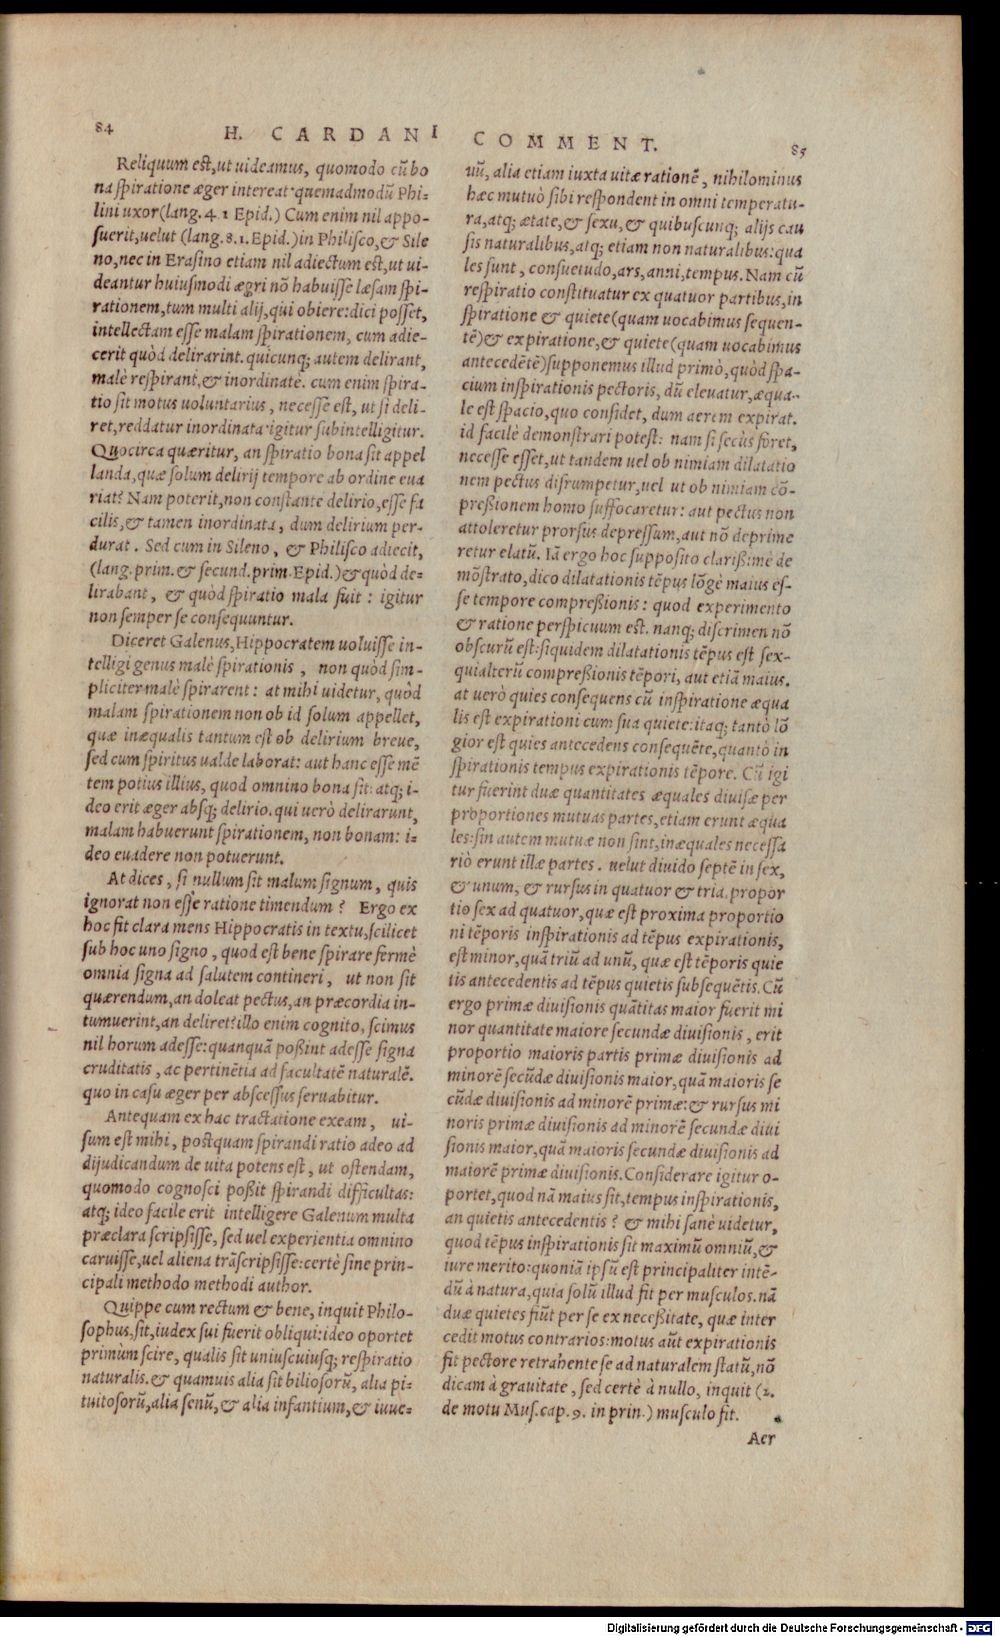 84
H. CARDANI COMMENT.
85
Reliquum est, ut uideamus, quomodo cū bo
na spiratione æger intereat quemadmodū Phi-
lini uxor (lang. 4. 1 Epid.) Cum enim nil appo-
suerit, uelut (lang. 8. 1. Epid.) in Philisco, & Sile
no, nec in Erasino etiam nil adiectum est, ut ui-
deantur huiusmodi ægri nō habuisse læsam spi-
rationem, tum multi alij, qui obiere: dici posset,
intellectam esse malam spirationem, cum adie-
cerit quòd delirarint. quicunq; autem delirant,
malè respirant, & inordinate. cum enim spira-
tio sit motus uoluntarius, necesse est, ut si deli-
ret, reddatur inordinata igitur subintelligitur.
Quocirca quæritur, an spiratio bona sit appel
landa, quæ solum delirij tempore ab ordine eua
riat? Nam poterit, non constante delirio, esse fa
cilis, & tamen inordinata, dum delirium per-
durat. Sed cum in Sileno, & Philisco adiecit,
(lang. prim. & secund. prim. Epid.) & quòd de-
lirabant, & quòd spiratio mala fuit: igitur
non semper se consequuntur.
Diceret Galenus, Hippocratem uoluisse in-
telligi genus malè spirationis, non quòd sim-
pliciter malè spirarent: at mihi uidetur, quòd
malam spirationem non ob id solum appellet,
quæ inæqualis tantum est ob delirium breue,
sed cum spiritus ualde laborat: aut hanc esse mē
tem potius illius, quod omnino bona sit: atq; i-
deo erit æger absq; delirio. qui uerò delirarunt,
malam habuerunt spirationem, non bonam: i-
deo euadere non potuerunt.
At dices, si nullum sit malum signum, quis
ignorat non esse ratione timendum? Ergo ex
hoc fit clara mens Hippocratis in textu, scilicet
sub hoc uno signo, quod est bene spirare fermè
omnia signa ad salutem contineri, ut non sit
quærendum, an doleat pectus, an præcordia in-
tumuerint, an deliret? illo enim cognito, scimus
nil horum adesse: quanquā poßint adesse signa
cruditatis, ac pertinētia ad facultatē naturalē.
quo in casu æger per abscessus seruabitur.
Antequam ex hac tractatione exeam, ui-
sum est mihi, postquam spirandi ratio adeo ad
dijudicandum de uita potens est, ut ostendam,
quomodo cognosci poßit spirandi difficultas:
atq; ideo facile erit intelligere Galenum multa
præclara scripsisse, sed uel experientia omnino
caruisse, uel aliena trāscripsisse: certè sine prin-
cipali methodo methodi author.
Quippe cum rectum & bene, inquit Philo-
sophus, sit, iudex sui fuerit obliqui: ideo oportet
primùm scire, qualis sit uniuscuiusq; respiratio
naturalis. & quamuis alia sit biliosorū, alia pi-
tuitosorū, alia senū, & alia infantium, & iuue-
uū, alia etiam iuxta uitæ rationē, nihilominus
hæc mutuò sibi respondent in omni temperatu-
ra, atq; ætate, & sexu, & quibuscunq; alijs cau
sis naturalibus, atq; etiam non naturalibus: qua
les sunt, consuetudo, ars, anni, tempus. Nam cū
respiratio constituatur ex quatuor partibus, in
spiratione & quiete (quam uocabimus sequen-
tē) & expiratione, & quiete (quam uocabimus
antecedētē) supponemus illud primò, quòd spa-
cium inspirationis pectoris, dū eleuatur, æqua-
le est spacio, quo consîdet, dum aerem expirat.
id facilè demonstrari potest: nam si secùs fōret,
necesse esset, ut tandem uel ob nimiam dilatatio
nem pectus disrumpetur, uel ut ob nimiam cō-
preßionem homo suffocaretur: aut pectus non
attoleretur prorsus depressum, aut nō deprime
retur elatū. Iā ergo hoc supposito clarißimè de
mōstrato, dico dilatationis tēpus lōgè maius es-
se tempore compreßionis: quod experimento
& ratione perspicuum est. nanq; discrimen nō
obscurū est: siquidem dilatationis tēpus est sex-
quialterū compreßionis tēpori, aut etiā maius.
at uerò quies consequens cū inspiratione æqua
lis est expirationi cum sua quiete: itaq; tantò lō
gior est quies antecedens consequēte, quantò in
spirationis tempus expirationis tēpore. Cū igi
tur fuerint duæ quantitates æquales diuisæ per
proportiones mutuas partes, etiam erunt æqua
les: sin autem mutuæ non sint, inæquales necessa
riò erunt illæ partes. uelut diuido septē in sex,
& unum, & rursus in quatuor & tria. propor
tio sex ad quatuor, quæ est proxima proportio
ni tēporis inspirationis ad tēpus expirationis,
est minor, quā triū ad unū, quæ est tēporis quie
tis antecedentis ad tēpus quietis subsequētis. Cū
ergo primæ diuisionis quātitas maior fuerit mi
nor quantitate maiore secundæ diuisionis, erit
proportio maioris partis primæ diuisionis ad
minorē secūdæ diuisionis maior, quā maioris se
cūdæ diuisionis ad minorē primæ: & rursus mi
noris primæ diuisionis ad minorē secundæ diui
sionis maior, quā maioris secundæ diuisionis ad
maiorē primæ diuisionis. Considerare igitur o-
portet, quod nā maius sit, tempus inspirationis,
an quietis antecedentis? & mihi sanè uidetur,
quod tēpus inspirationis sit maximū omniū, &
iure merito: quoniā ipsū est principaliter intē-
dū à natura, quia solū illud fit per musculos. nā
duæ quietes fiūt per se ex neceßitate, quæ inter
cedit motus contrarios: motus aūt expirationis
fit pectore retrahente se ad naturalem statū, nō
dicam à grauitate, sed certè à nullo, inquit (2.
de motu Mus. cap. 9. in prin.) musculo fit.
Aer
Digitalisierung gefördert durch die Deutsche Forschungsgemeinschaft - DFG